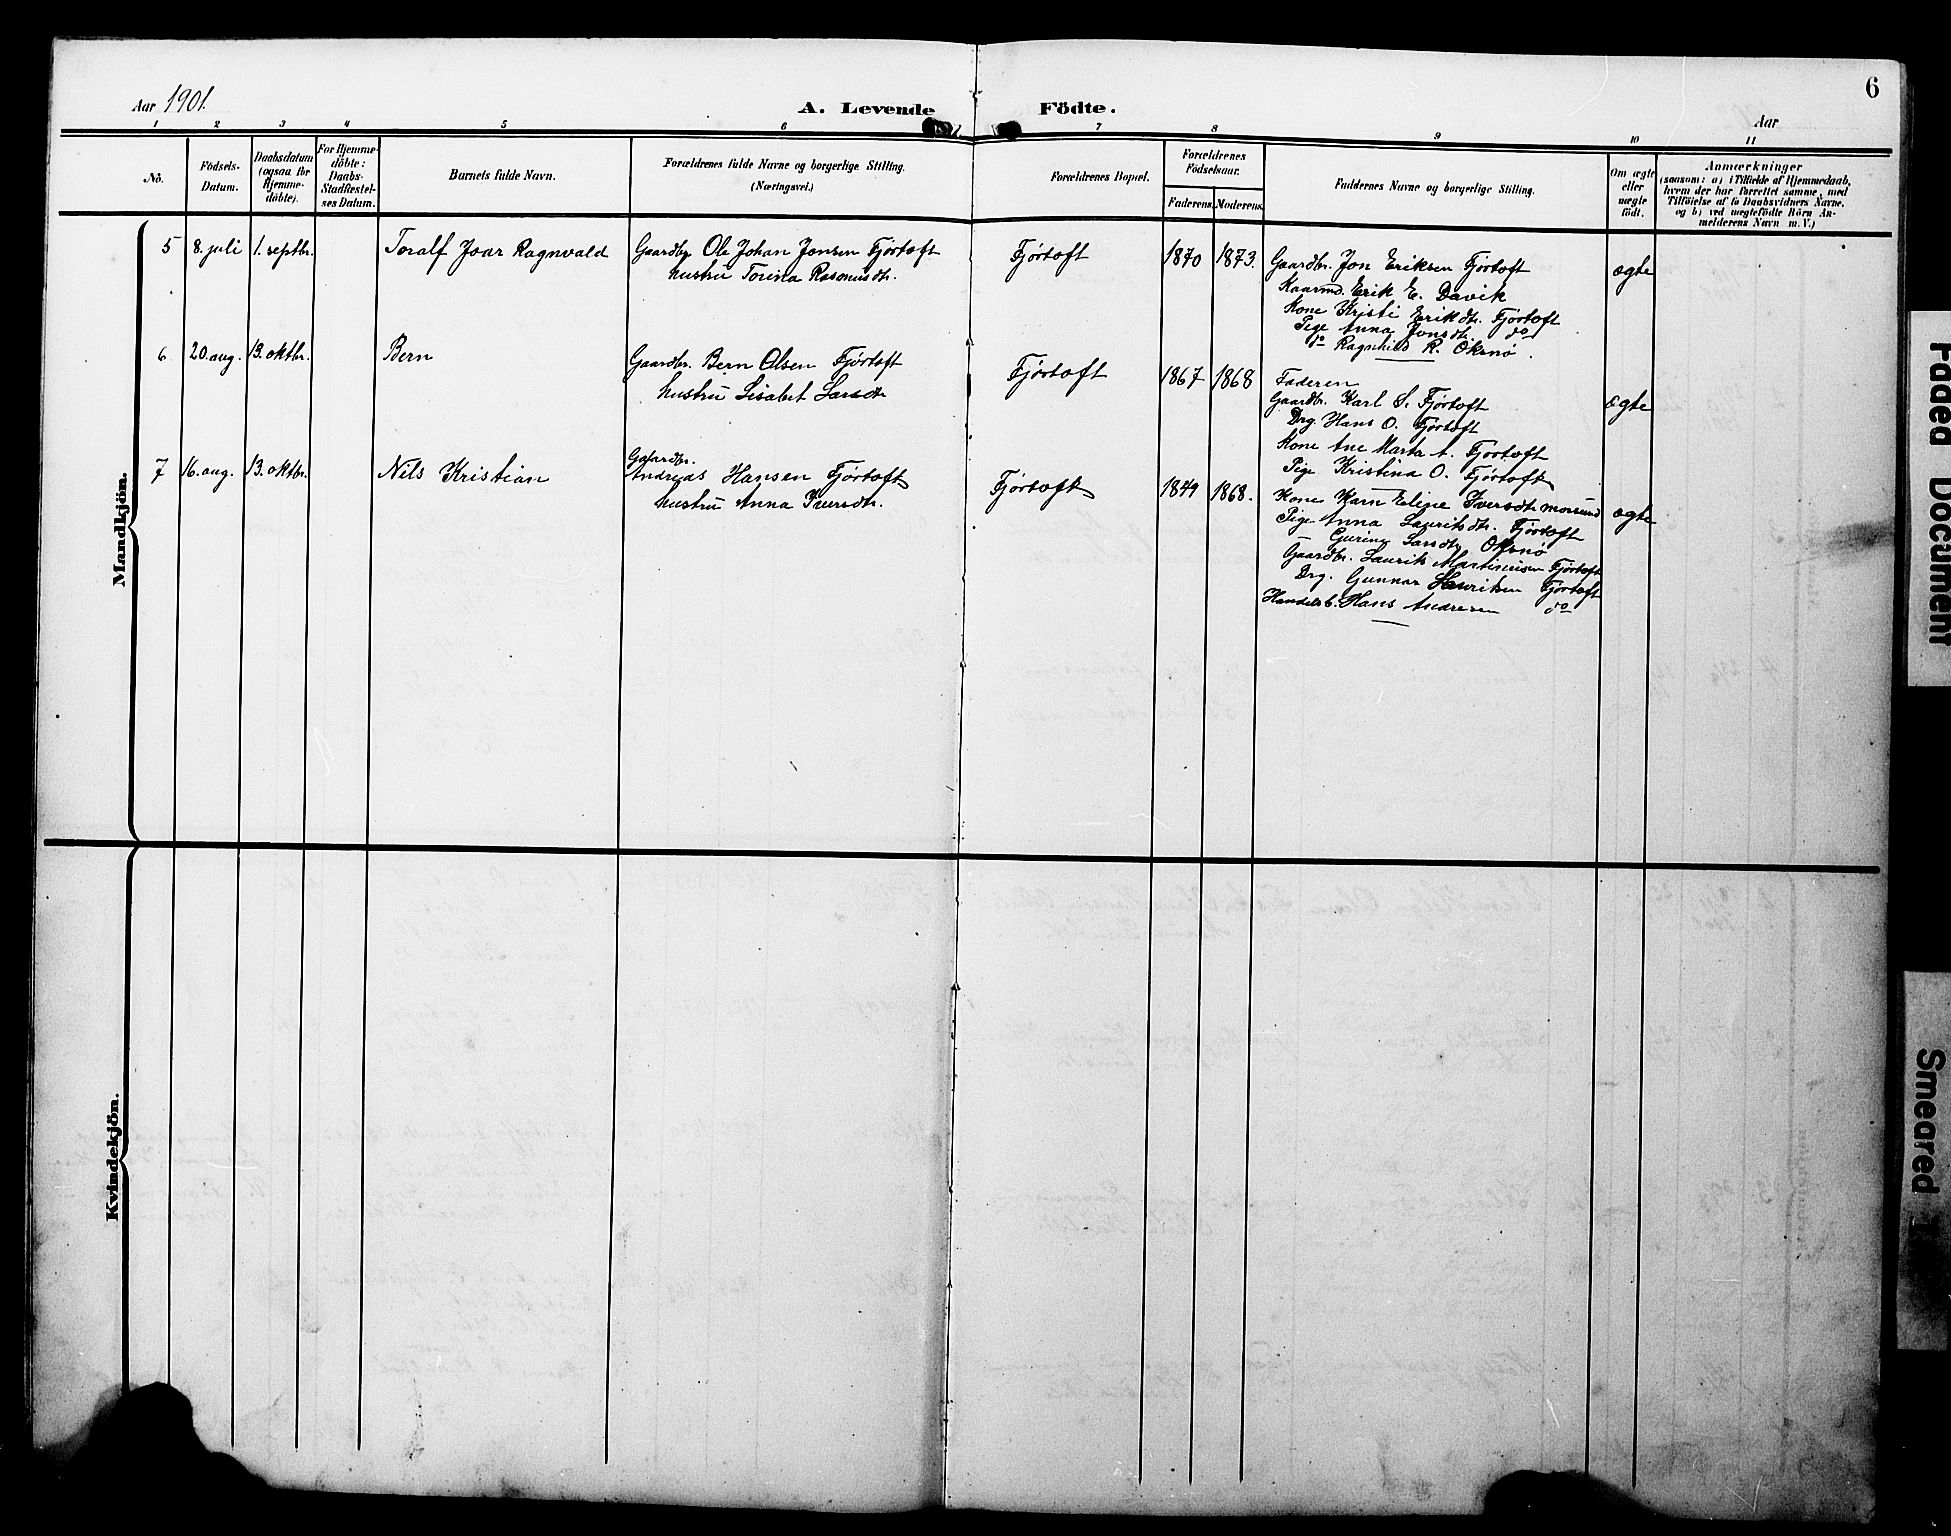 6
Aar 1901.
A. Levende Födte.
Aar
1 2 3 4 5 6 7 8 9 10 11
Nö.
Födsels-
Datum.
Daabsdatum
(ogsaa for
Hjemme-
döbte).
For Hjemme-
döbte:
Daabs-
Stadfæstel-
ses Datum.
Barnets fulde Navn.
Forældrenes fulde Navne og borgerlige Stilling.
(Næringsvei.)
Forældrenes Bopæl.
Forældrenes
Födselsaar.
Faderens. Moderens.
Faddernes Navne og borgerlige Stilling.
Om ægte
eller
uægte
födt.
Anmærkninger
(saasom: a) i Tilfælde af Hjemmedaab,
hvem der har forrettet samme, med
Tilföielse af to Daabsvidners Navne,
og b) ved uægtefödte Börn An-
melderens Navn m. V.)
Mandkjön.
5 8. juli 1. septbr. Toralf Joar Ragnvald
Gaardbr. Ole Johan Jonsen Fjörtoft
hustru Torina Rasmusdtr.
Fjörtoft 1870 1873.
Gaardbr. Jon Eriksen Fjörtoft
Kaarmd. Erik E. Davik
Kone Kristi Eriksdtr. Fjörtoft
Pige Anna Jonsdtr. do
do Ragnhild R. Öksnö.
ægte
6 20. aug. 13. oktbr. Bern
Gaardbr. Bern Olsen Fjörtoft
hustru Lisabet Larsdtr
Fjörtoft 1867 1868
Faderen
Gaardbr. Karl S. Fjörtoft
Drg. Hans O. Fjörtoft
Kone Ane Marta A. Fjörtoft
Pige Kristina O. Fjörtoft
ægte
7 16. aug. 13. oktbr. Nils Kristian
Gaardbr.
Andreas Hansen Fjörtoft
hustru Anna Iversdtr.
Fjörtoft 1849 1868.
Kone Karn Eline Iversdtr
Pige Anna Lauritsdtr. Fjörtoft
— Gurine Larsdtr Öksnö
Gaardbr. Laurits Martinusen Fjörtoft
Drg. Gunnar Lauritsen Fjörtoft
Handelsb. Hans Andresen do
ægte
Kvindekjön.
Faded Document
Smeared